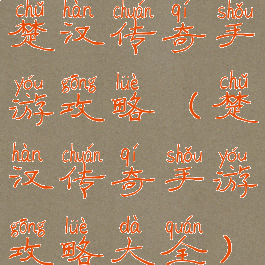 chǔ hàn chuán qí shǒu
楚汉传奇手
yóu gōng lüè chǔ
游攻略(楚
hàn chuán qí shǒu yóu
汉传奇手游
gōng lüè dà quán
攻略大全)